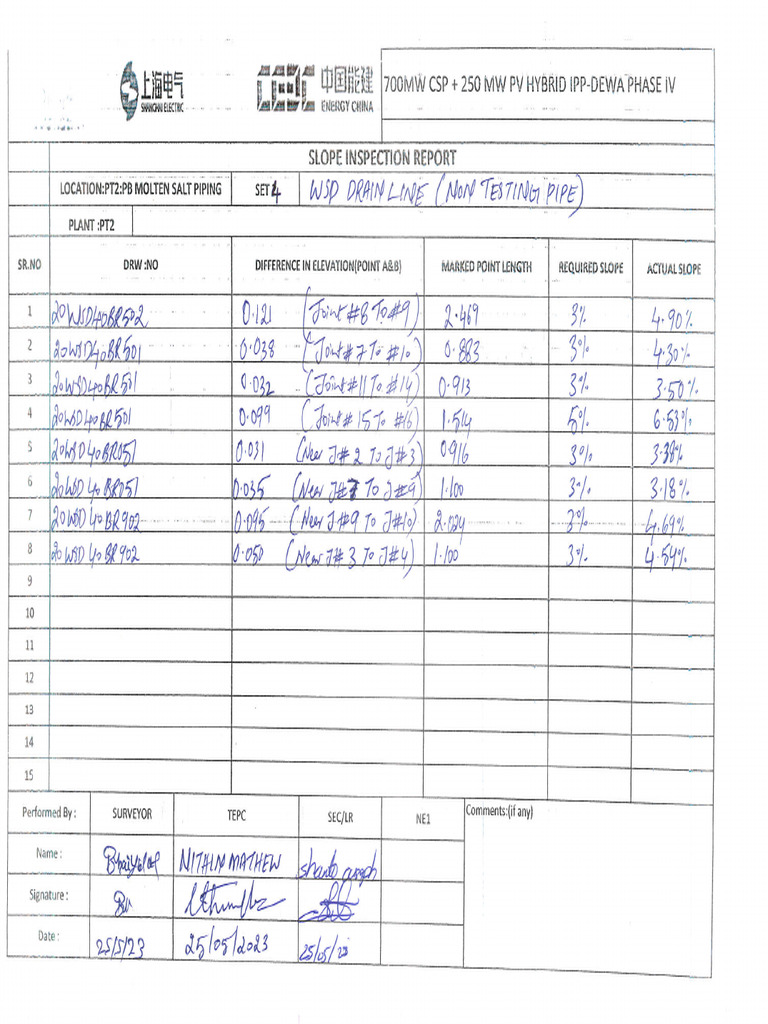 上海电气
SHANGHAI ELECTRIC
CEEC 中国能建
ENERGY CHINA
700MW CSP + 250 MW PV HYBRID IPP-DEWA PHASE IV
SLOPE INSPECTION REPORT
LOCATION:PT2:PB MOLTEN SALT PIPING SET 4 WSD DRAIN LINE (NON TESTING PIPE)
PLANT :PT2
SR.NO DRW :NO DIFFERENCE IN ELEVATION(POINT A&B) MARKED POINT LENGTH REQUIRED SLOPE ACTUAL SLOPE
1 20WSD40BR502 0.121 (Joint #8 To #9) 2.469 3% 4.90%
2 20WSD40BR501 0.038 (Joint # 7 To # 10) 0.883 3% 4.30%
3 20WSD40BR501 0.032 (Joint # 11 To # 14) 0.913 3% 3.50%
4 20WSD40BR501 0.099 (Joint # 15 To #16) 1.514 5% 6.53%
5 20WSD40BR051 0.031 (New J# 2 To J# 3) 0.916 3% 3.38%
6 20WSD40BR051 0.035 (New J#7 To J#9) 1.100 3% 3.18%
7 20WSD40BR902 0.095 (New J#9 To J#10) 2.024 3% 4.69%
8 20WSD40BR902 0.050 (New J# 3 To J# 4) 1.100 3% 4.54%
9
10
11
12
13
14
15
Performed By : SURVEYOR TEPC SEC/LR NE1 Comments:(if any)
Name : NITHIN MATHEW
Signature :
Date : 25/5/23 25/05/2023 25/05/